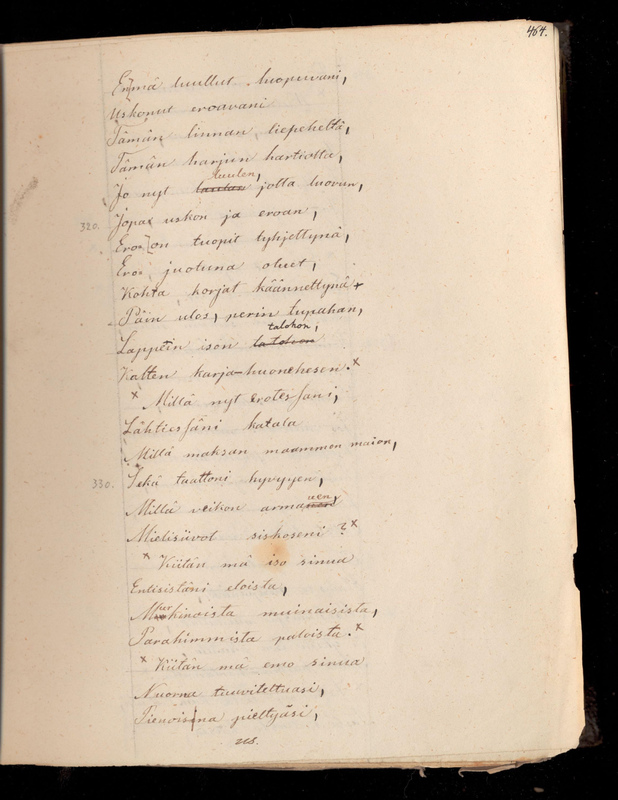 464.
Enmä luullut luopuvani,
Uskonut eroavani
Tämän linnan liepeheltä,
Tämän harjun hartiolta,
Jo nyt luulen, jotta luovun,
320. Jopa uskon ja eroan,
Ero on tuopit tyhjettynä,
Ero juotuna oluet,
Kohta korjat käännettynä
Päin ulos, perin tupahan,
Lappein ison talohon,
Katten karja-huonehesen.
Millä nyt erotessani,
Lähtiessäni katala
Millä maksan maammon maion,
330. Sekä taattoni hyvyyen,
Millä veikon armauen,
Mielisuvot siskoseni?
Kiitän mä iso sinua
Entisistäni eloista,
Murkinoista muinaisista,
Parahimmista paloista.
Kiitän mä emo sinua
Nuorna tuuviteltuasi,
Pienoisna piettyäsi,